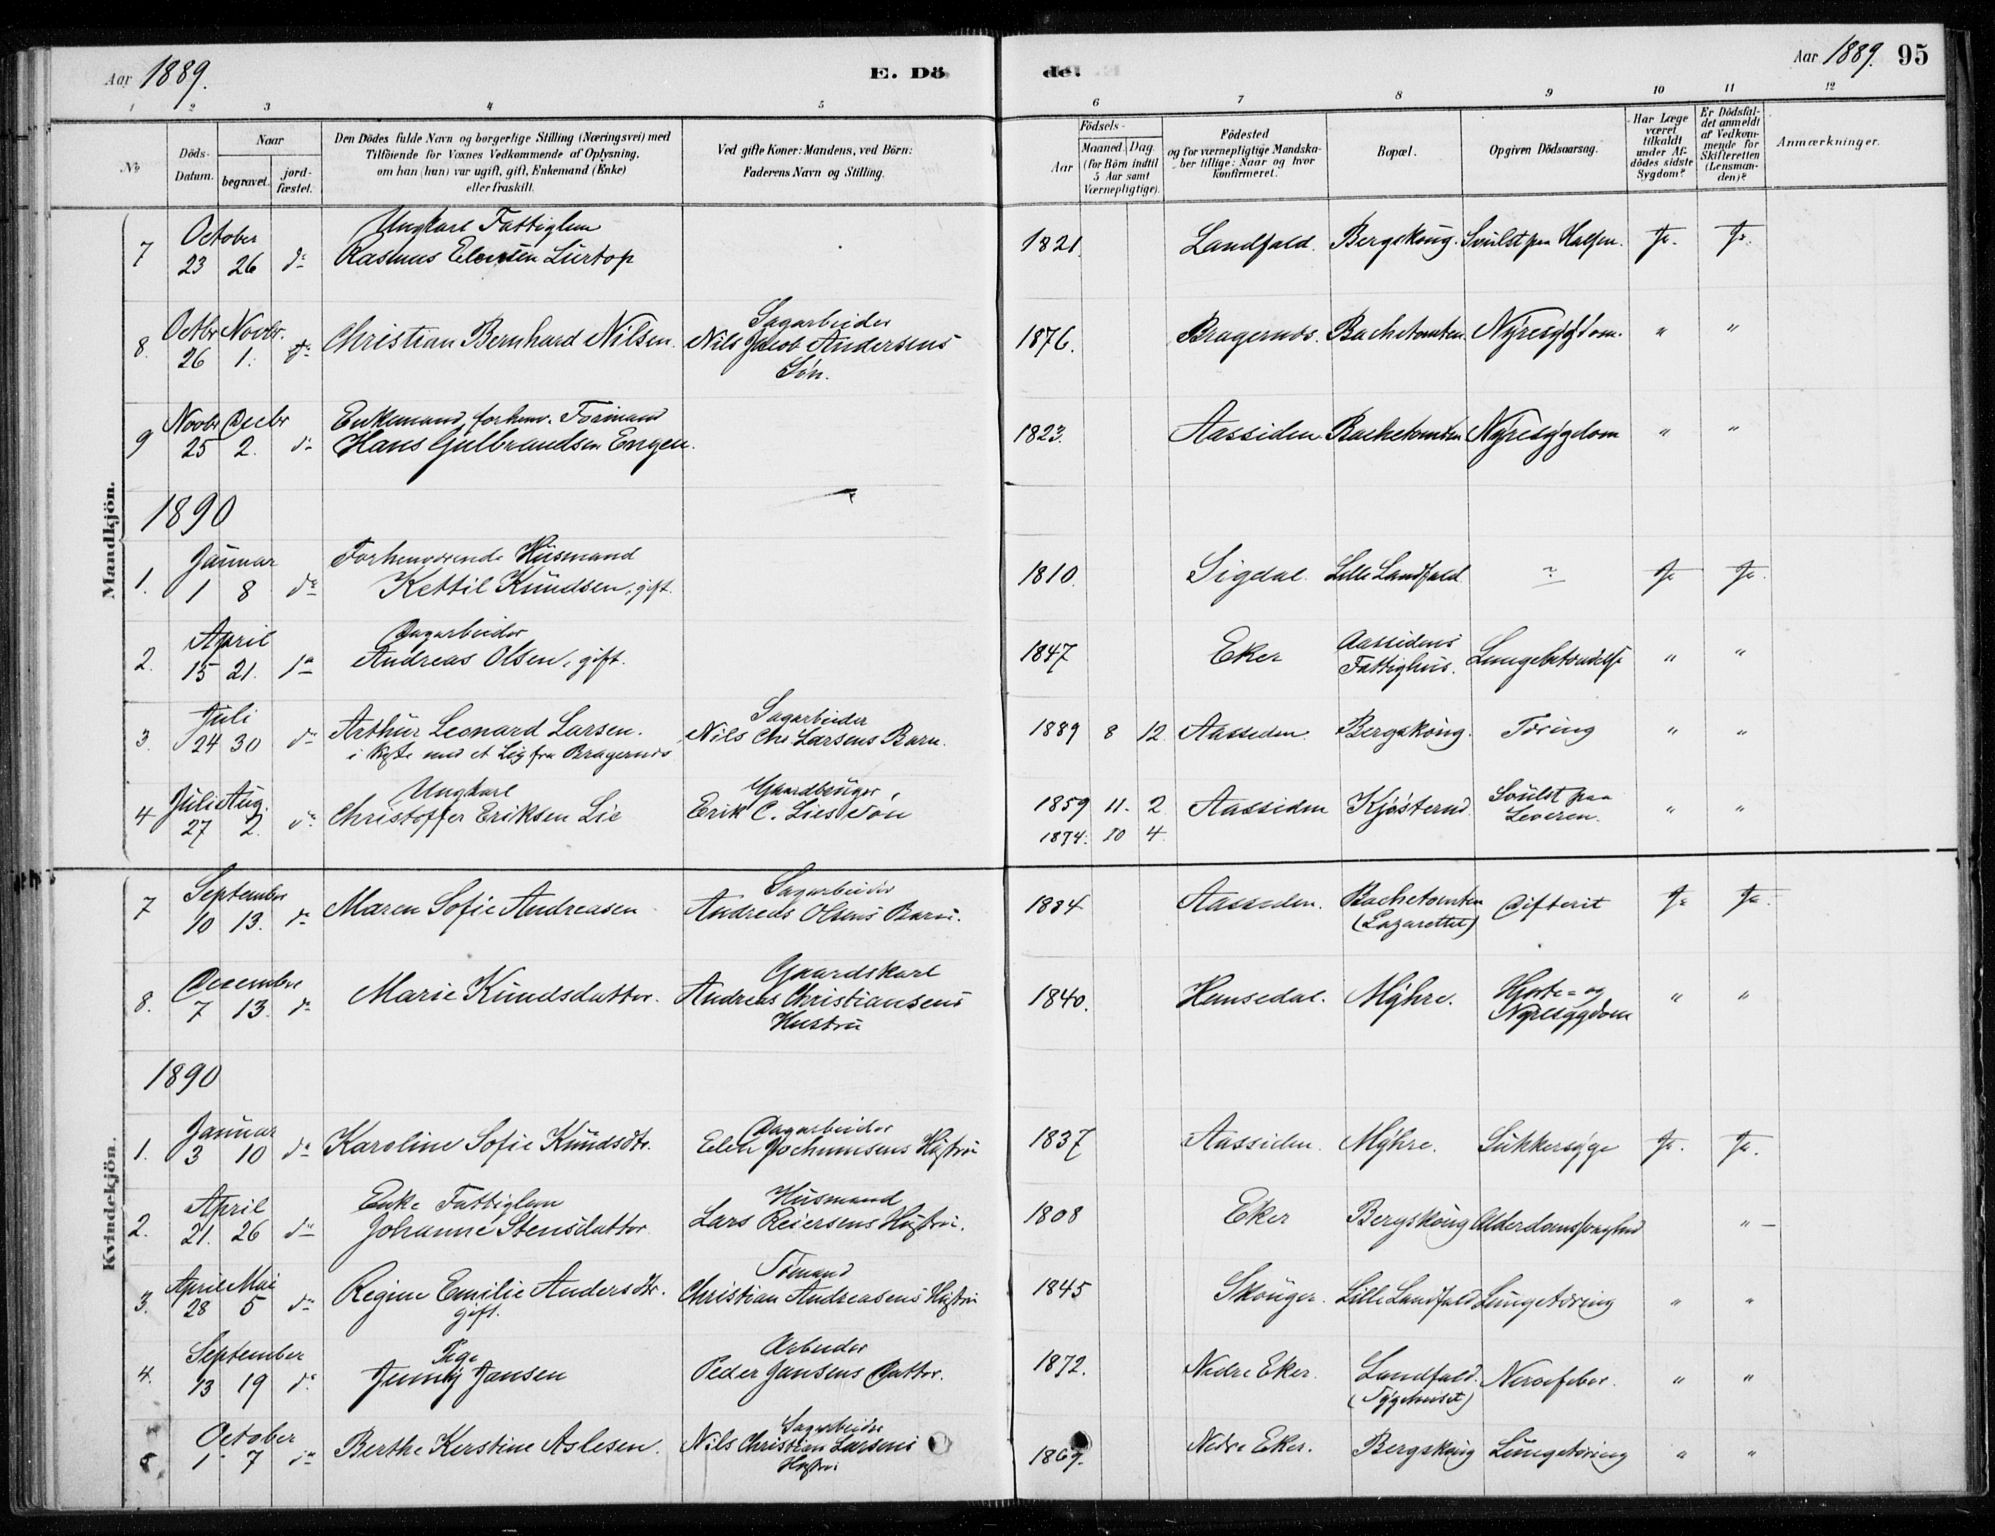 Aar 1889.
E. Döde.
Aar 1889. 95
1 2 3 4 5 6 7 8 9 10 11 12
No
Döds-Datum.
Naar
begravet.
jordfæstet.
Den Dödes fulde Navn og borgerlige Stilling (Næringsvei) med
Tilföiende for Voxnes Vedkommende af Oplysning,
om han (hun) var ugift, gift, Enkemand (Enke)
eller fraskilt.
Ved gifte Koner: Mandens, ved Börn:
Faderens Navn og Stilling.
Födsels-
Aar
Maaned. Dag.
(for Börn indtil
5 Aar samt
Værnepligtige).
Födested
og for værnepligtige Mandska-
ber tillige: Naar og hvor
konfirmeret.
Bopæl.
Opgiven Dödsaarsag.
Har Læge
været
tilkaldt
under Af-
dödes sidste
Sygdom?
Er Dödsfal-
det anmeldt
af Vedkom-
mende for
Skifteretten
(Lensman-
den)?
Anmærkninger.
Mandkjön.
October Ungkarl Fattiglem
7 23 26 do Rasmus Lurtop 1821. Landfald. Bergskoug. Svulst paa Halsen. Ja. Ja.
Octbr Novbr. Sagarbeider
8. 26 1. do Christian Bernhard Nilsen. Nils Jacob Andersens 1876. Bragernæs. Bachetomten. Nyresygdom. " "
Søn.
Novbr Decbr Enkemand, forhenv. Formand
9 25 2. do Hans Gulbrandsen Engen. 1823. Aassiden Bachetomten Nyresygdom " "
1890
Januar Forhenværende Husmand
1. 1 8 do Kettil Knudsen, gift. 1810. Sigdal. Lille Landfald ? Ja Ja.
April Dagarbeider Aassidens
2. 15 21. Andreas Olsen, gift. 1847 Eker Fattighus. Lungebetændelse " "
Juli Sagarbeider
3. 24 30 do Arthur Leonard Larsen. Nils Chr Larsens Barn. 1889 8 12 Aasseden. Bergskoug. Tæring " "
i Kiste med et Lig fra Bragernæs
Juli Aug. Ungkarl Gaardbruger, Svulst paa
4 27 2. do Christoffer Eriksen Lie Erik C. Lies Søn 1859 11. 2 Aassiden Kjøsterud Leveren. " "
1874. 10 4.
Kvindekjön.
September Sagarbeider
7 10 13. do Maren Sofie Andreasen Andreas Olsens Barn. 1884 Aasseden. Bachetomten Difterit Ja Ja.
(Lazarettet)
December Gaardskarl Hjerte- og
8. 7 13. do Marie Knudsdatter. Andreas Christiansens 1840. Hemsedal. Myhre. Nyresygdom " "
Hustru
1890
Januar Dagarbeider
1. 3 10 do Karoline Sofie Knudsdtr. Eilert Jochumsens Hustru 1837 Aassiden. Myhre. Sukkersyge Ja. Ja.
April Enke Fattiglem Husmand
2. 21. 26 do Johanne Stensdatter Lars Reiersens Hustru. 1808 Eker Bergskoug Alderdomssvaghed " –
April Mai Tømand
3. 28 5 do Regine Emilie Andersdtr. Christian Andreasens Hustru 1845 Skouger. Lille Landfald Lungetæring " "
gift.
September Pige Arbeider
4. 13 19 do Jenny Jansen Peder Jansens Datter. 1872. Nedre Eker. Landfald. Nervefeber. " "
(Sygehuset)
October Sagarbeider
5 1 7 do Berthe Kerstine Aslesen. Nils Christian Larsens 1869. Nedre Eker. Bergskoug Lungetæring " "
Hustru